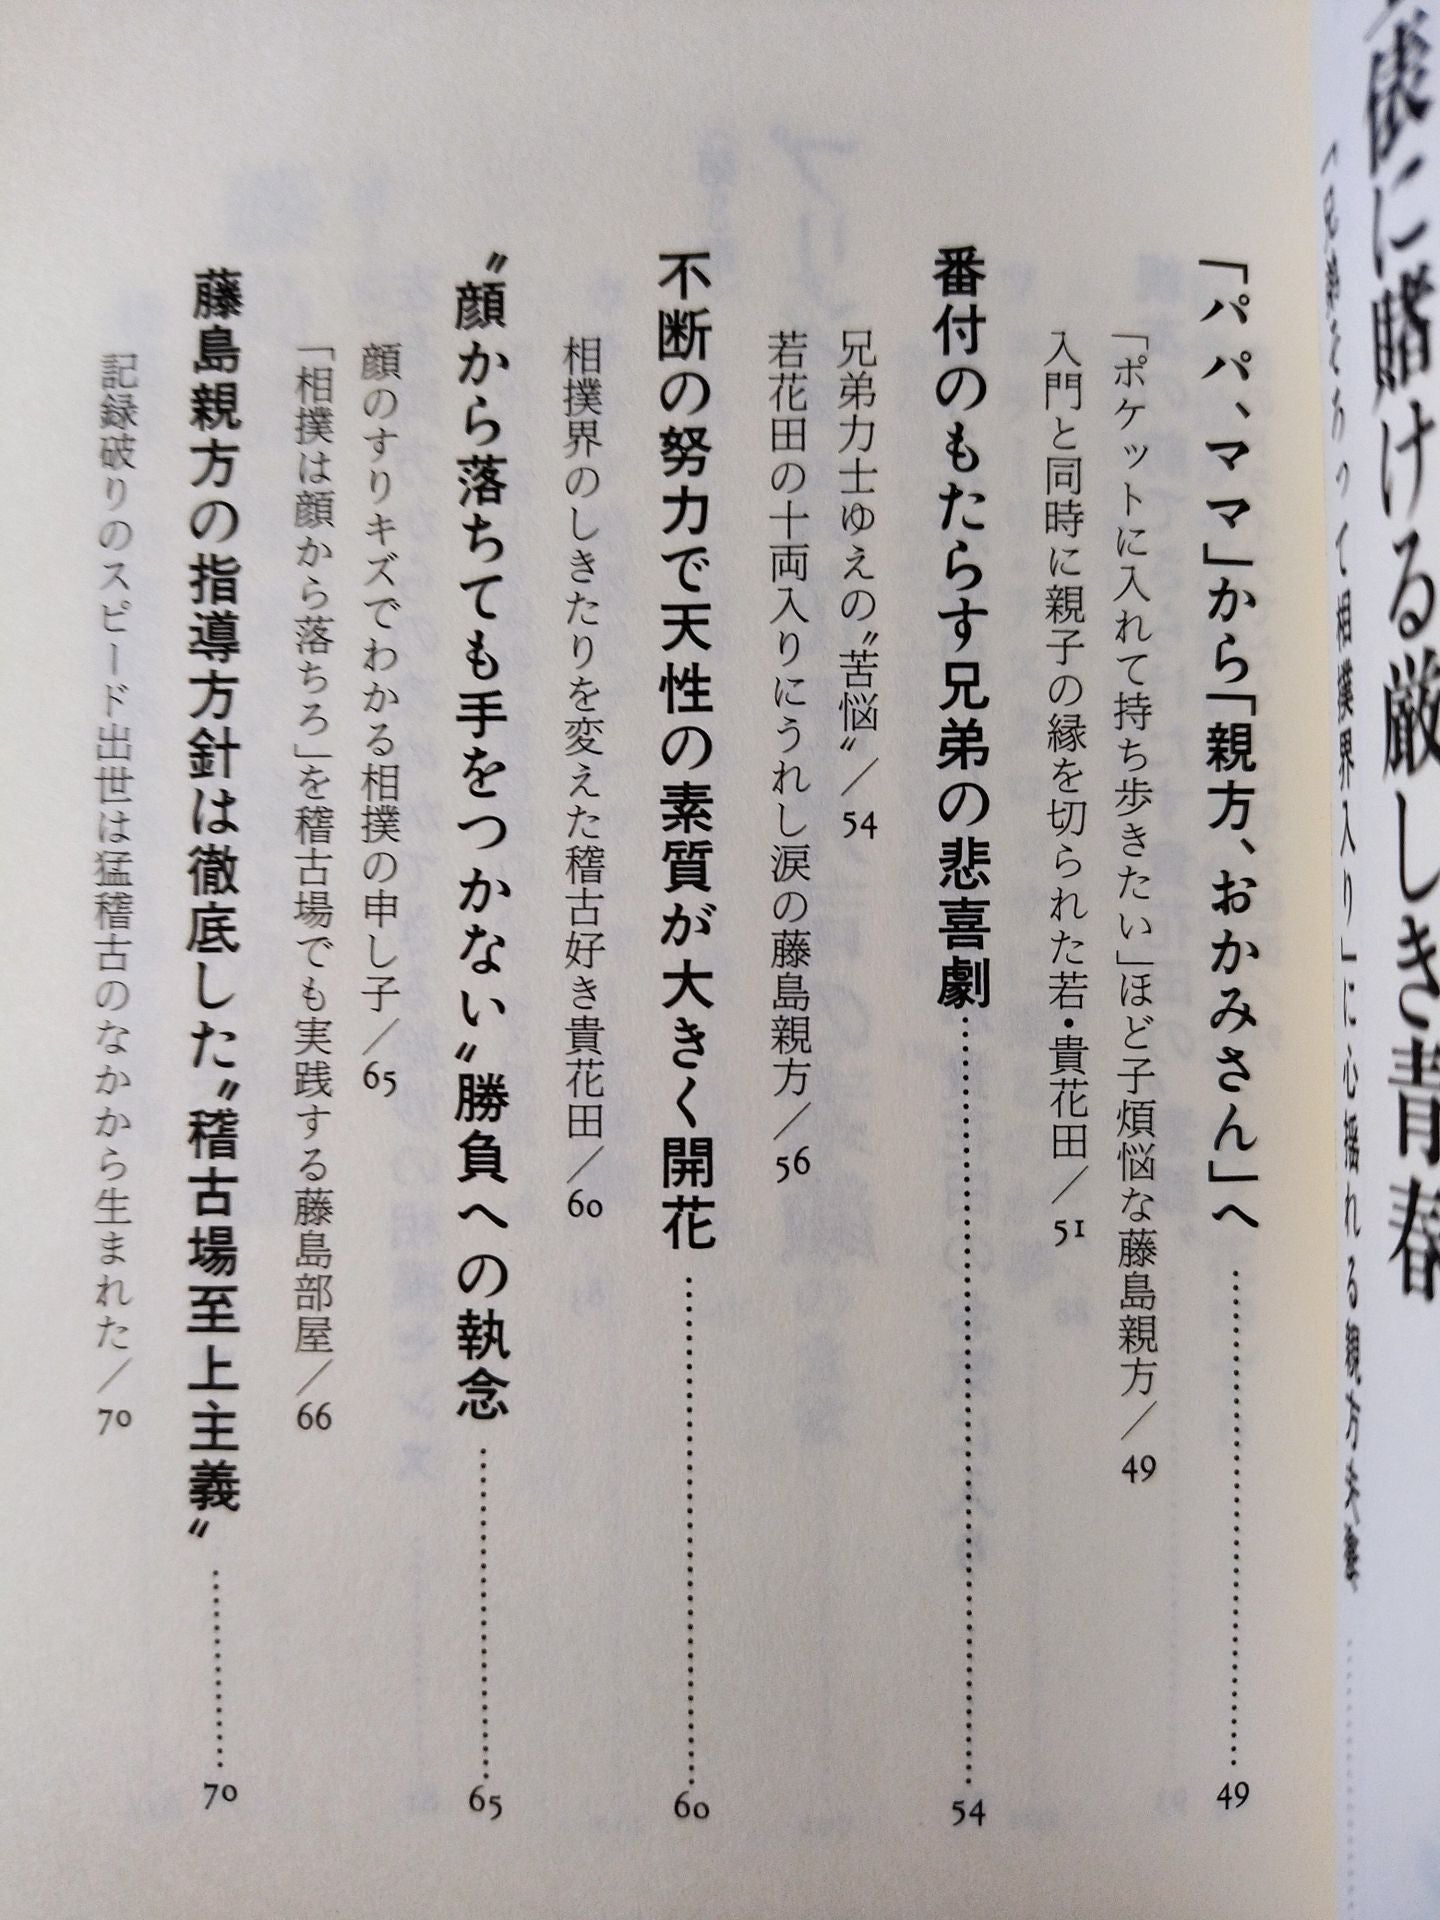 俵に賭ける厳しき青春
相撲界入り」に心揺れる親方夫妻
「パパ、ママ」から「親方、おかみさん」へ 49
「ポケットに入れて持ち歩きたい」ほど子煩悩な藤島親方／49
入門と同時に親子の縁を切られた若・貴花田／51
番付のもたらす兄弟の悲喜劇 54
兄弟力士ゆえの〝苦悩〟／54
若花田の十両入りにうれし涙の藤島親方／56
不断の努力で天性の素質が大きく開花 60
相撲界のしきたりを変えた稽古好き貴花田／60
〝顔から落ちても手をつかない〟勝負への執念 65
顔のすりキズでわかる相撲の申し子／65
「相撲は顔から落ちろ」を稽古場でも実践する藤島部屋／66
藤島親方の指導方針は徹底した〝稽古場至上主義〟 70
記録破りのスピード出世は猛稽古のなかから生まれた／70